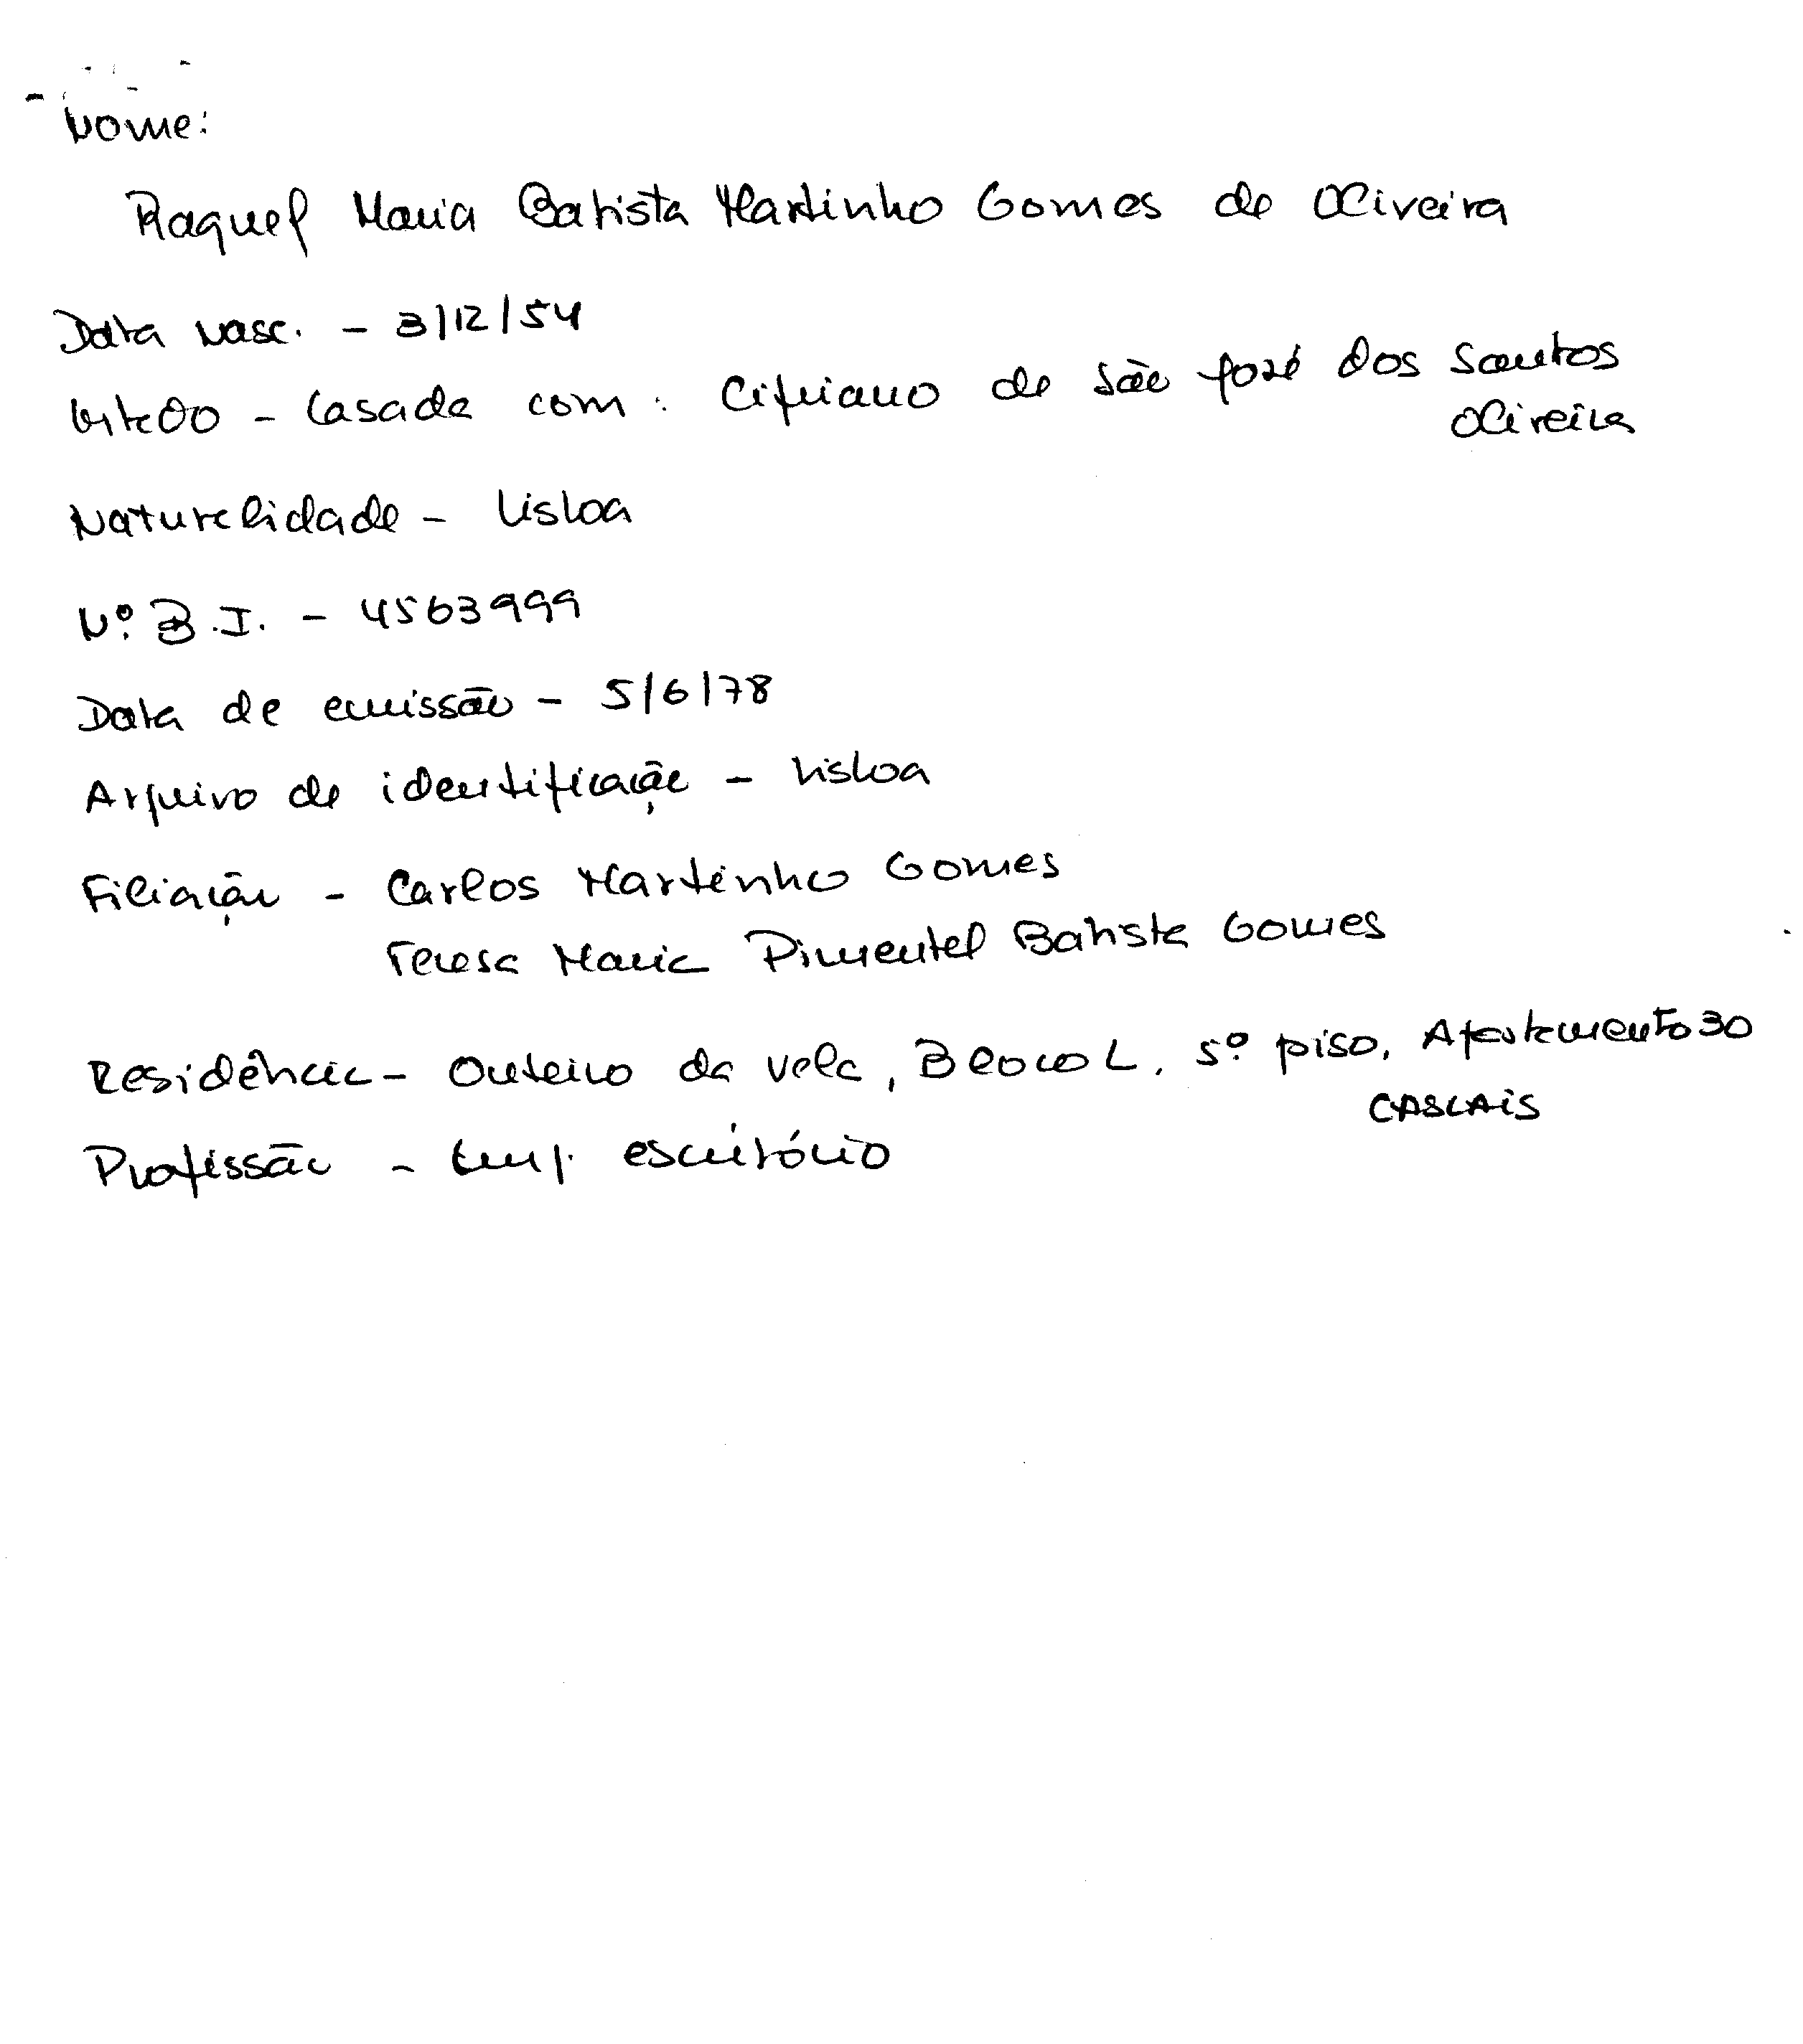 Nome:
Raquel Maria Batista Martinho Gomes de Oliveira
Data nasc. - 3/12/54
Estado - Casada com: Cipriano de São José dos Santos
Oliveira
Naturalidade - Lisboa
Nº B.I. - 4563999
Data de emissão - 5/6/78
Arquivo de identificação - Lisboa
Filiação - Carlos Martinho Gomes
Teresa Maria Pimentel Batista Gomes
Residência - Outeiro da Vela, Bloco L, 5º piso, Apartamento 30
CASCAIS
Profissão - Emp. escritório